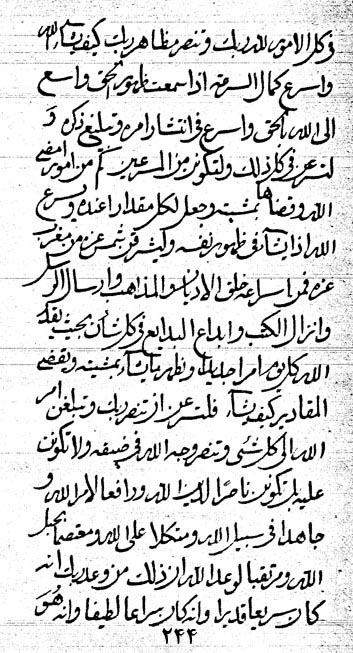 فوكل الامور لله ربك وتنصر مظاهر ربك كيف يشاء الله
واسرع كمال السرعة اذا سمعت ظهور الحق واسع
الى الله الحق واسرع فى انتشار امره وتبليغ ذكره و
لتسرعن فى كل ذلك ولتكونن من المسرعين كم من امور امضى
الله وقضاها بمشيته وجعل لكل مقدارا عنده ويسرع
الله اذا يشاء فى ظهور نفسه وليشرقن شمس عزه من مغرب
عزه فمن اسراعه خلق الاديان والمذاهب وارسال الرسل
وانزال الكتب وابداع البدايع فى كل شأن بحيث يقدر
الله كل يوم امرا جديدا ويظهر ما يشاء بمشيته ويقضى
المقادير كيف يشاء فلتسرعن ان تنصر ربك وتبلغن امر
الله الى كل شئ وتنصر وجه الله فى ضيقه ولا تكونن
عليه بل تكونن ناصرا لدين الله ورافعا لامر الله و
جاهدا فى سبيل الله ومتكلا على الله ومعتصما بحبل
الله ومرتقبا لوعد الله ان ذلك من وعد ربك انه
كان سريعا قديرا وانه كان سراعا لطيفا وانه هو
٢٤٤